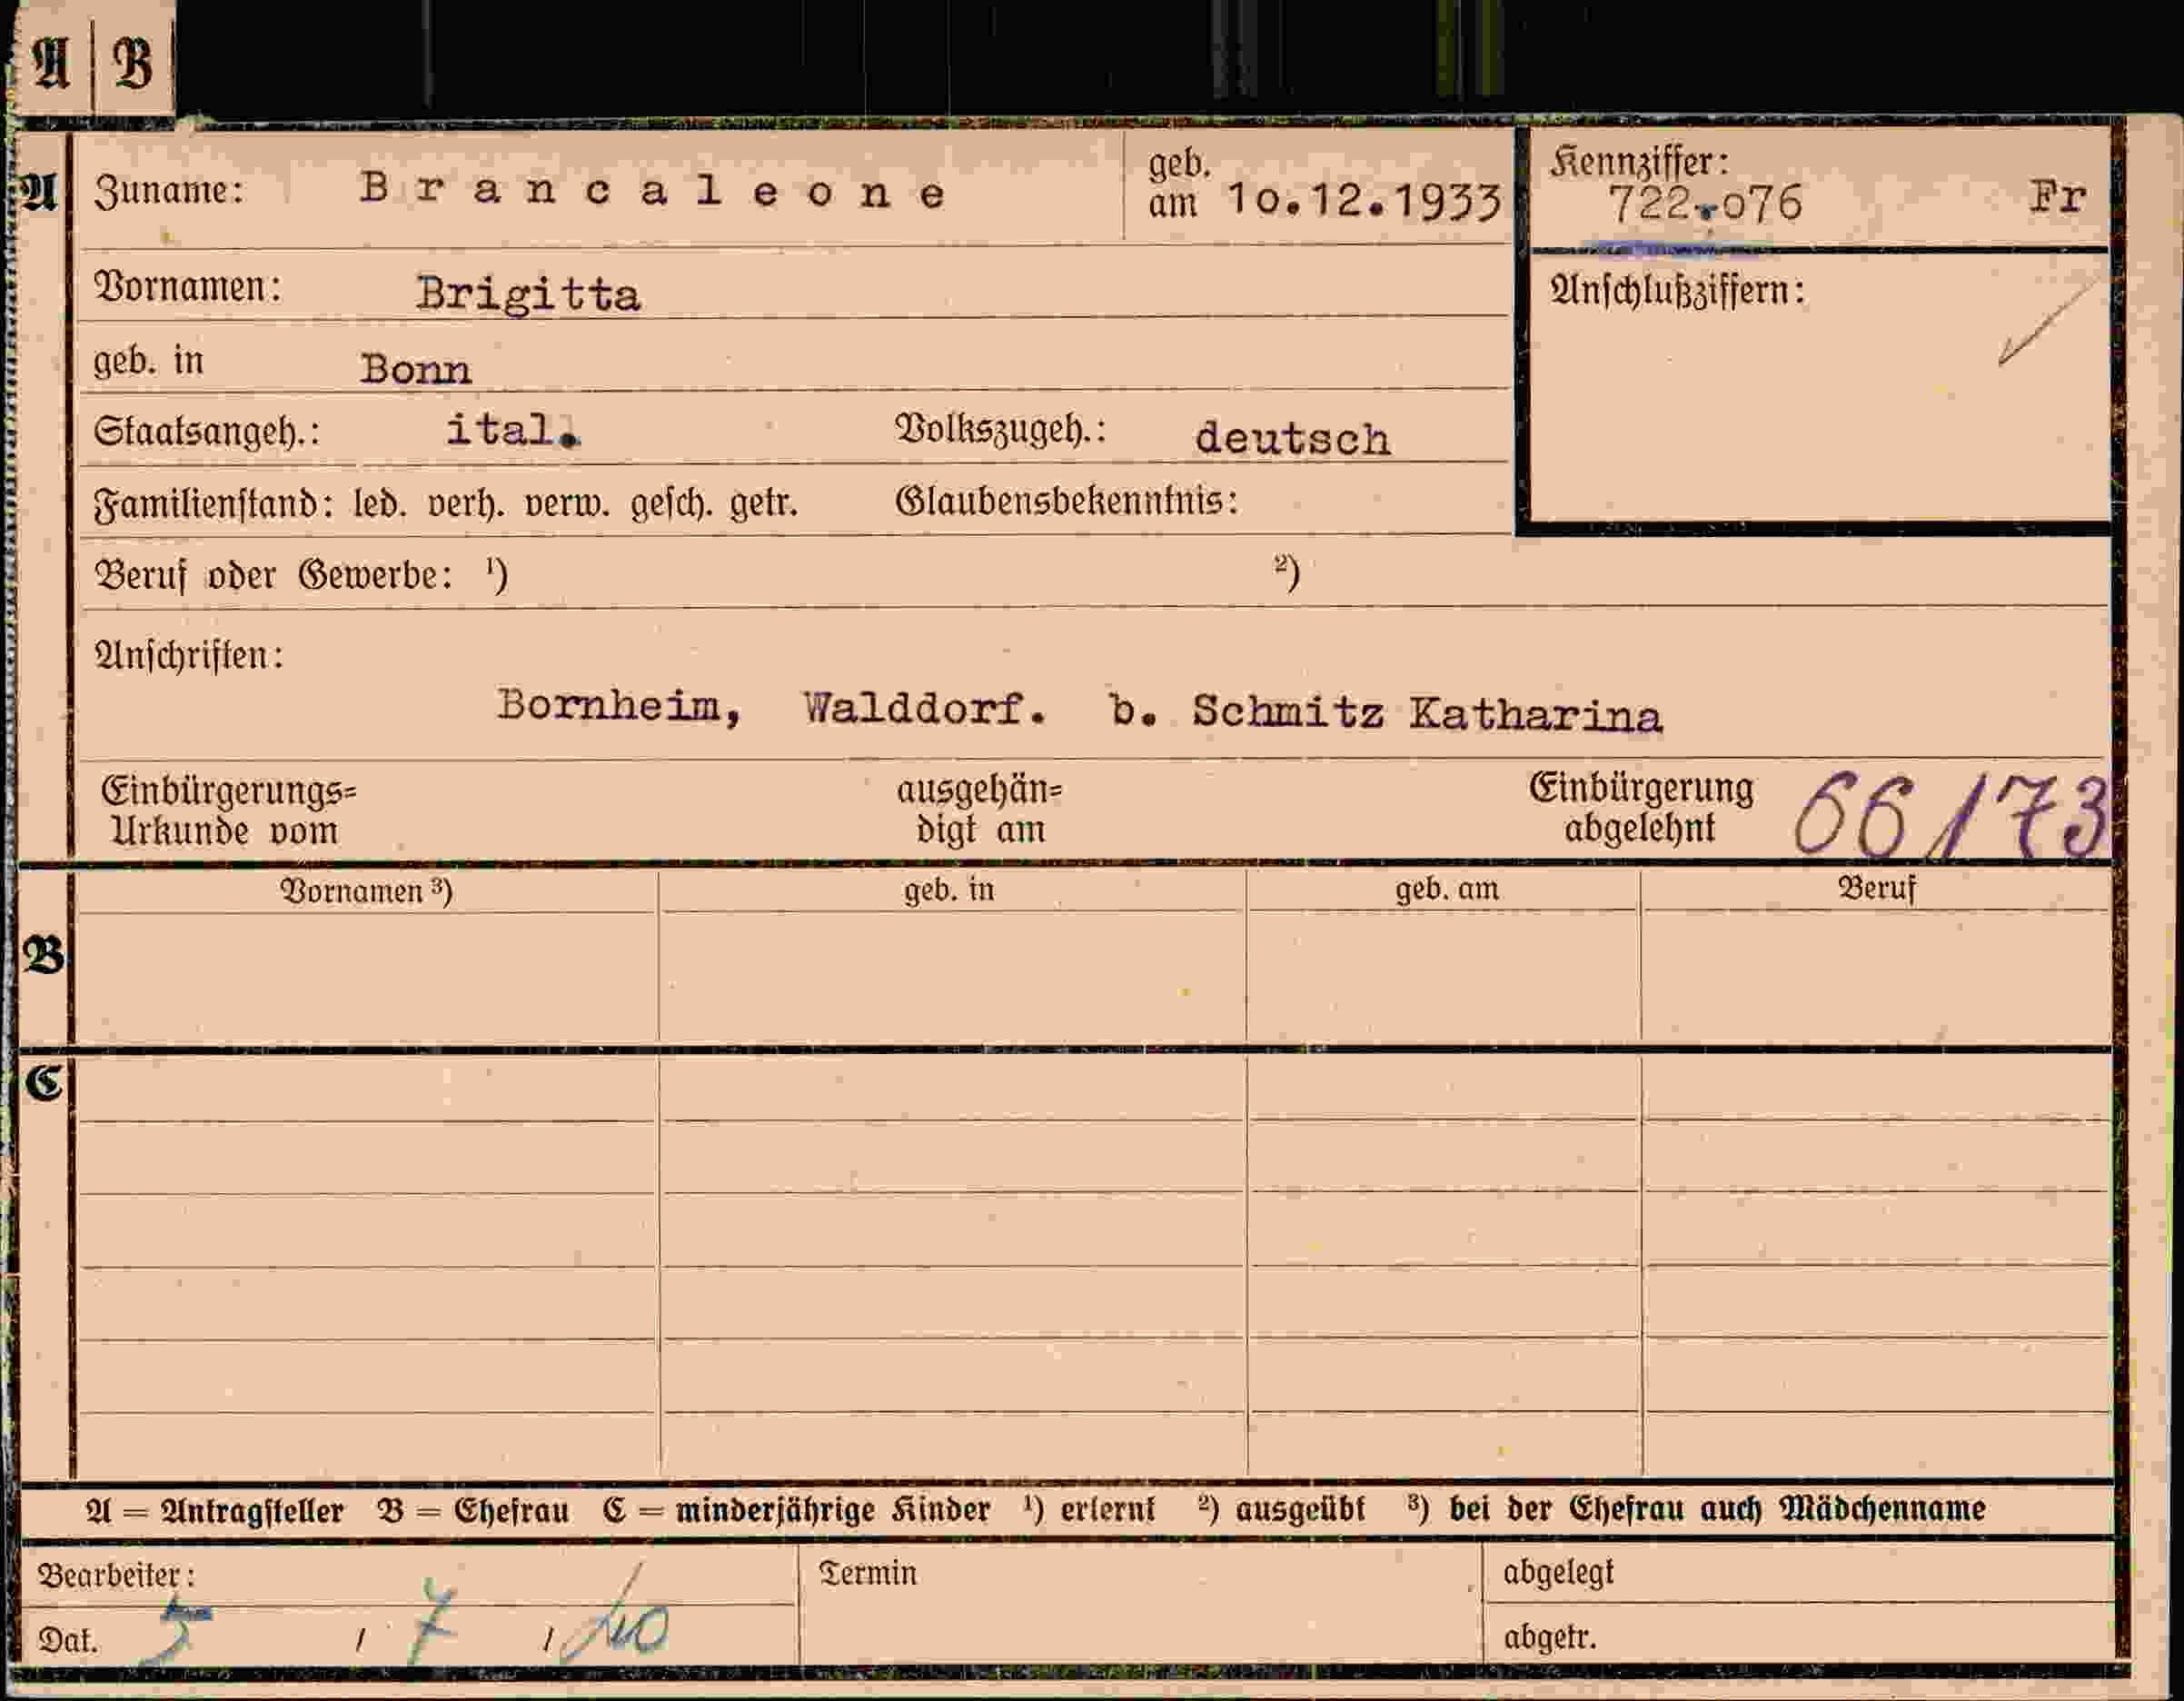 A | B
A Zuname: Brancaleone geb. am 10.12.1933 Kennziffer: 722.076 Fr
Vornamen: Brigitta Anschlußziffern:
geb. in Bonn
Staatsangeh.: ital. Volkszugeh.: deutsch
Familienstand: led. verh. verw. gesch. getr. Glaubensbekenntnis:
Beruf oder Gewerbe: ¹) ²)
Anschriften:
Bornheim, Walddorf. b. Schmitz Katharina
Einbürgerungs= ausgehän= Einbürgerung 66/73
Urkunde vom digt am abgelehnt
Vornamen ³) geb. in geb. am Beruf
B
C
A = Antragsteller B = Ehefrau C = minderjährige Kinder ¹) erlernt ²) ausgeübt ³) bei der Ehefrau auch Mädchenname
Bearbeiter: Termin abgelegt
Dat. 5 / 7 / 40 abgetr.